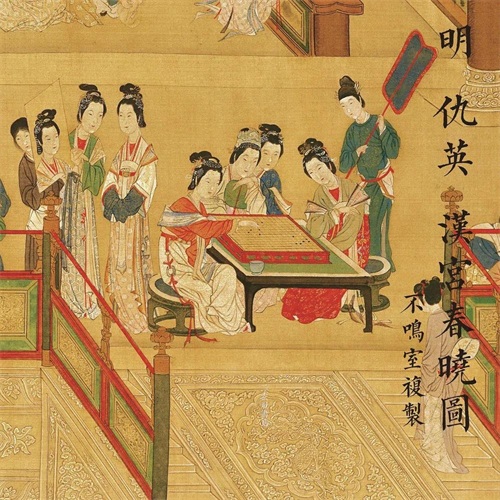 明仇英漢宮春曉圖
不鳴室複製